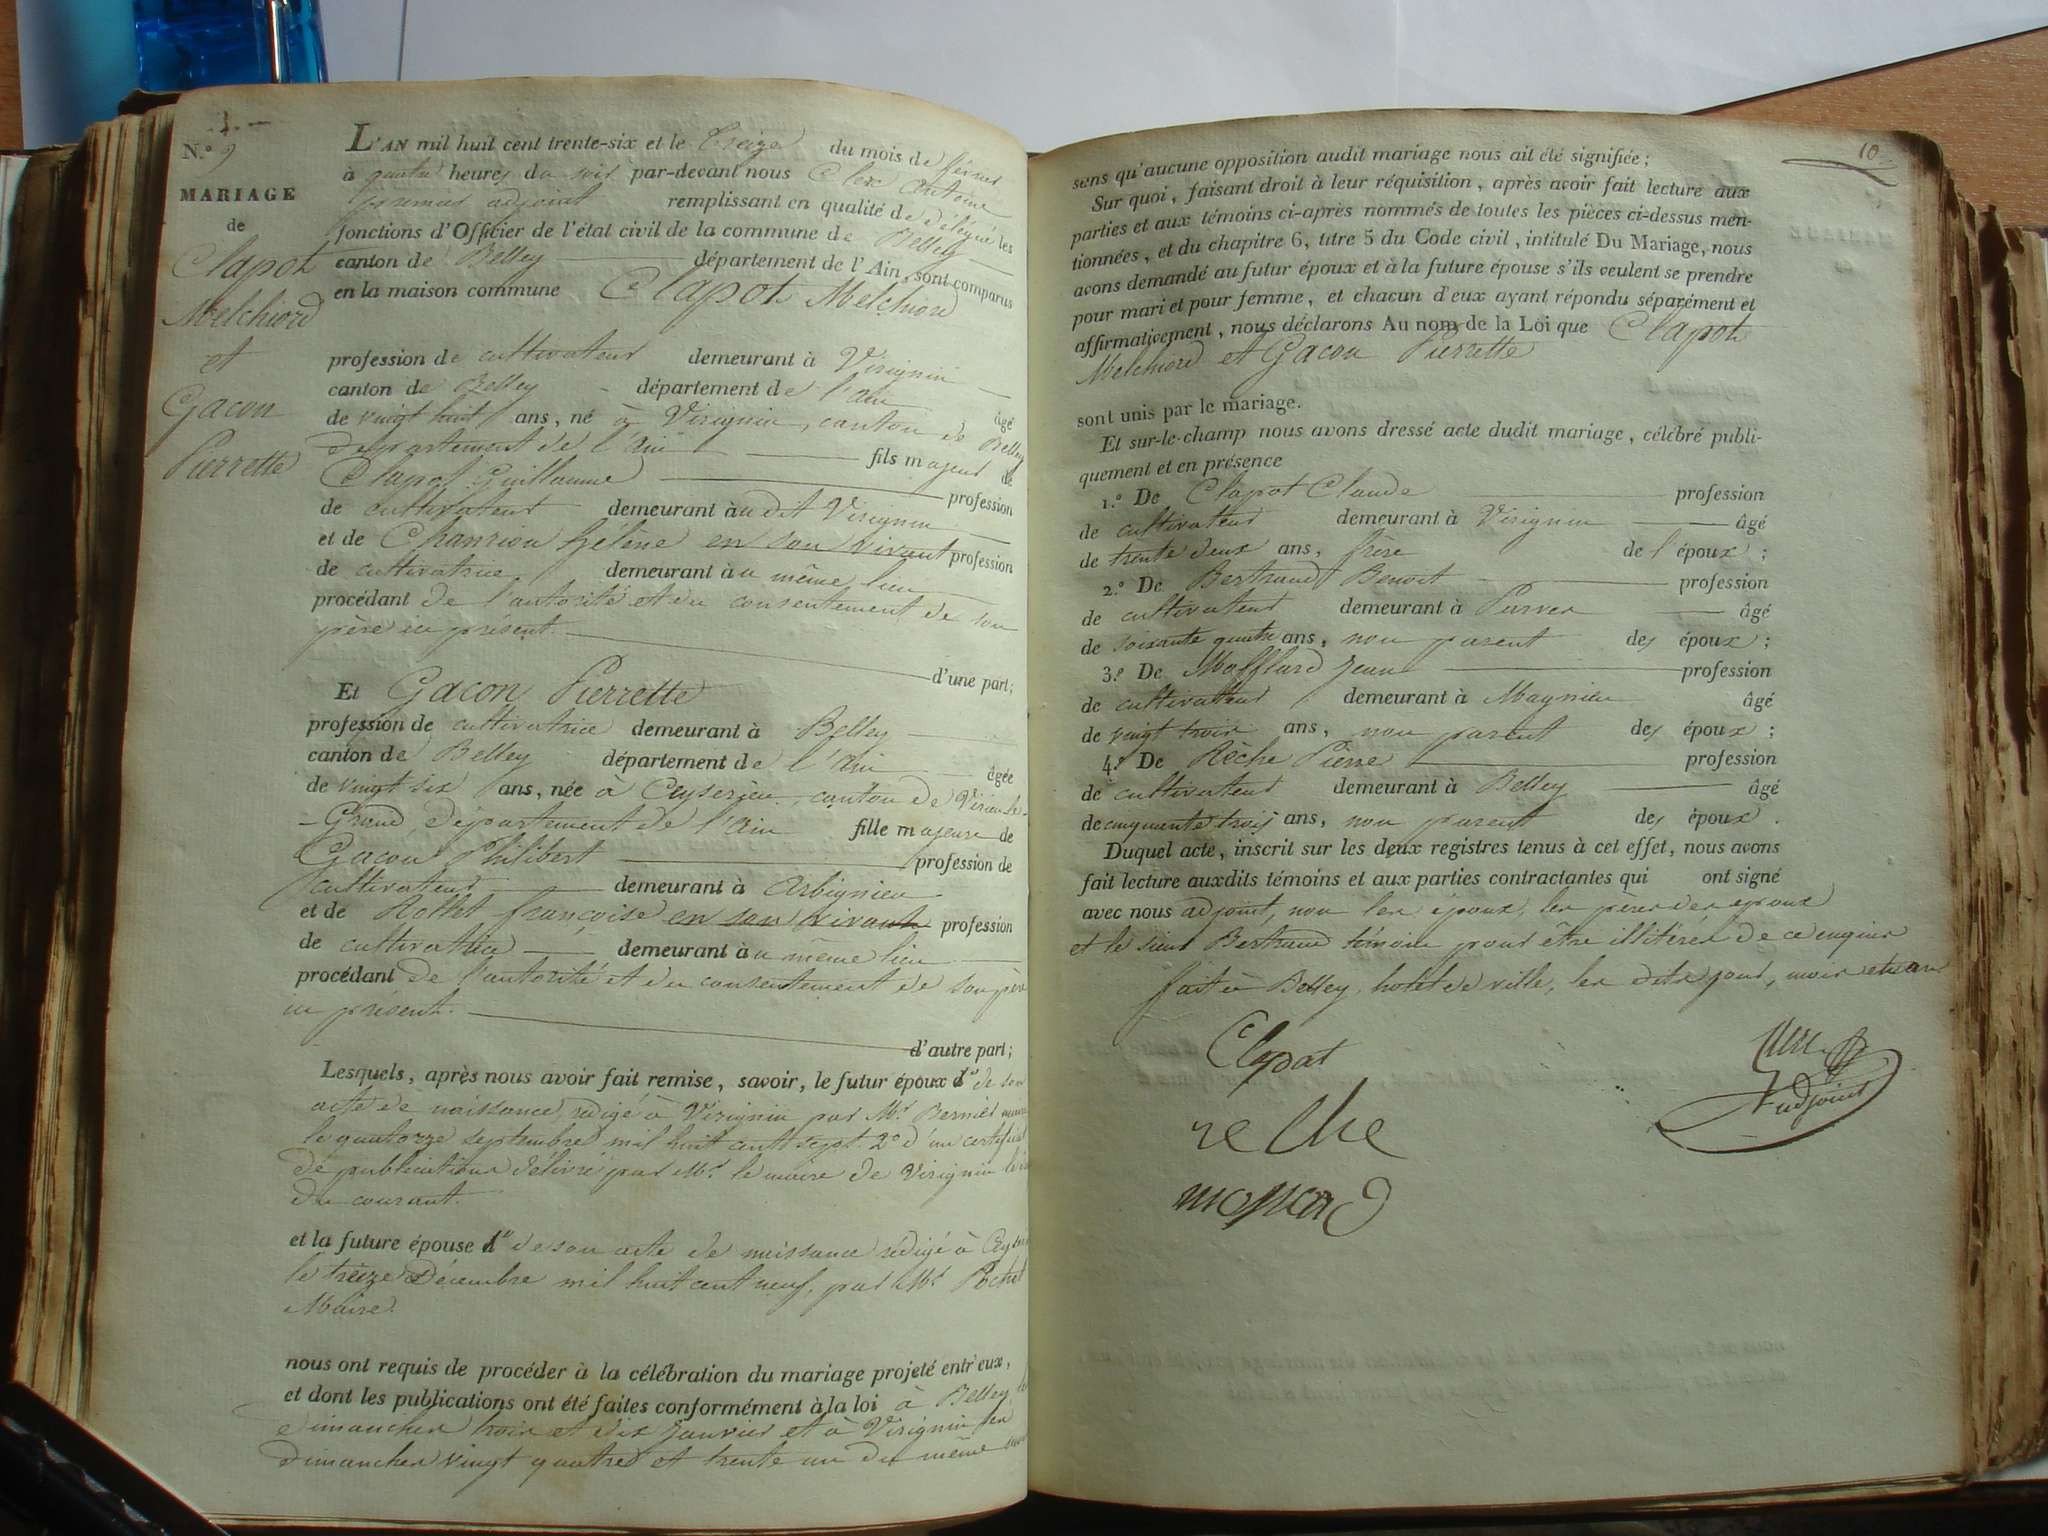 N.º 9
MARIAGE
de
Clapot
Melchiord
et
Gacon
Pierrette
L'AN mil huit cent trente-six et le treize du mois de février
à quatre heures du soir par-devant nous Antoine
premier adjoint remplissant en qualité de délégué les
fonctions d'Officier de l'état civil de la commune de Belley
canton de Belley département de l'Ain, sont comparus
en la maison commune Clapot Melchiord
profession de cultivateur demeurant à Virignin
canton de Belley département de l'Ain âgé
de vingt huit ans, né à Virignin, canton de Belley
département de l'Ain fils majeur de
Clapot Guillaume profession
de cultivateur demeurant audit Virignin
et de Chanrion hélène en son vivant profession
de cultivatrice demeurant au même lieu
procédant de l'autorité et du consentement de son
père ici présent.
d'une part;
Et Gacon Pierrette
profession de cultivatrice demeurant à Belley
canton de Belley département de l'Ain âgée
de vingt six ans, née à Ceyserieu, canton de Virieu-le-
-Grand, département de l'Ain fille majeure de
Gacon Philibert profession de
cultivateur demeurant à Arbignieu
et de Rollet françoise en son vivant profession
de cultivatrice demeurant au même lieu
procédant de l'autorité et du consentement de son père
ici présent.
d'autre part;
Lesquels, après nous avoir fait remise, savoir, le futur époux 1º de son
acte de naissance, rédigé à Virignin par Mr Bernier maire
le quatorze septembre mil huit cent sept. 2º d'un certificat
de publications délivré par Mr le maire de Virignin
du courant.
et la future épouse 1º de son acte de naissance rédigé à
le treize Décembre mil huit cent neuf, par Mr Pochet
Maire.
nous ont requis de procéder à la célébration du mariage projeté entr'eux,
et dont les publications ont été faites conformément à la loi à Belley les
dimanches trois et dix janvier et à Virignin les
dimanches vingt quatre et trente un du même mois
10
sans qu'aucune opposition audit mariage nous ait été signifiée;
Sur quoi, faisant droit à leur réquisition, après avoir fait lecture aux
parties et aux témoins ci-après nommés de toutes les pièces ci-dessus men-
tionnées, et du chapitre 6, titre 5 du Code civil, intitulé Du Mariage, nous
avons demandé au futur époux et à la future épouse s'ils veulent se prendre
pour mari et pour femme, et chacun d'eux ayant répondu séparément et
affirmativement, nous déclarons Au nom de la Loi que Clapot
Melchiord et Gacon Pierrette
sont unis par le mariage.
Et sur-le-champ nous avons dressé acte dudit mariage, célébré publi-
quement et en présence
1.º De Clapot Claude profession
de cultivateur demeurant à Virignin âgé
de trente deux ans, frère de l'époux;
2.º De Bertrand Benoit profession
de cultivateur demeurant à âgé
de soixante quatre ans, non parent des époux;
3.º De Mofflard Jean profession
de cultivateur demeurant à Magnieu âgé
de vingt trois ans, non parent des époux;
4.º De Rèche Pierre profession
de cultivateur demeurant à Belley âgé
de cinquante trois ans, non parent des époux.
Duquel acte, inscrit sur les deux registres tenus à cet effet, nous avons
fait lecture auxdits témoins et aux parties contractantes qui ont signé
avec nous adjoint, non les époux, les pères des époux
et le sieur Bertrand témoin pour être illitérés de ce enquis
fait à Belley, hotel de ville, les dits jour, mois et an
Clapat
reche
adjoint